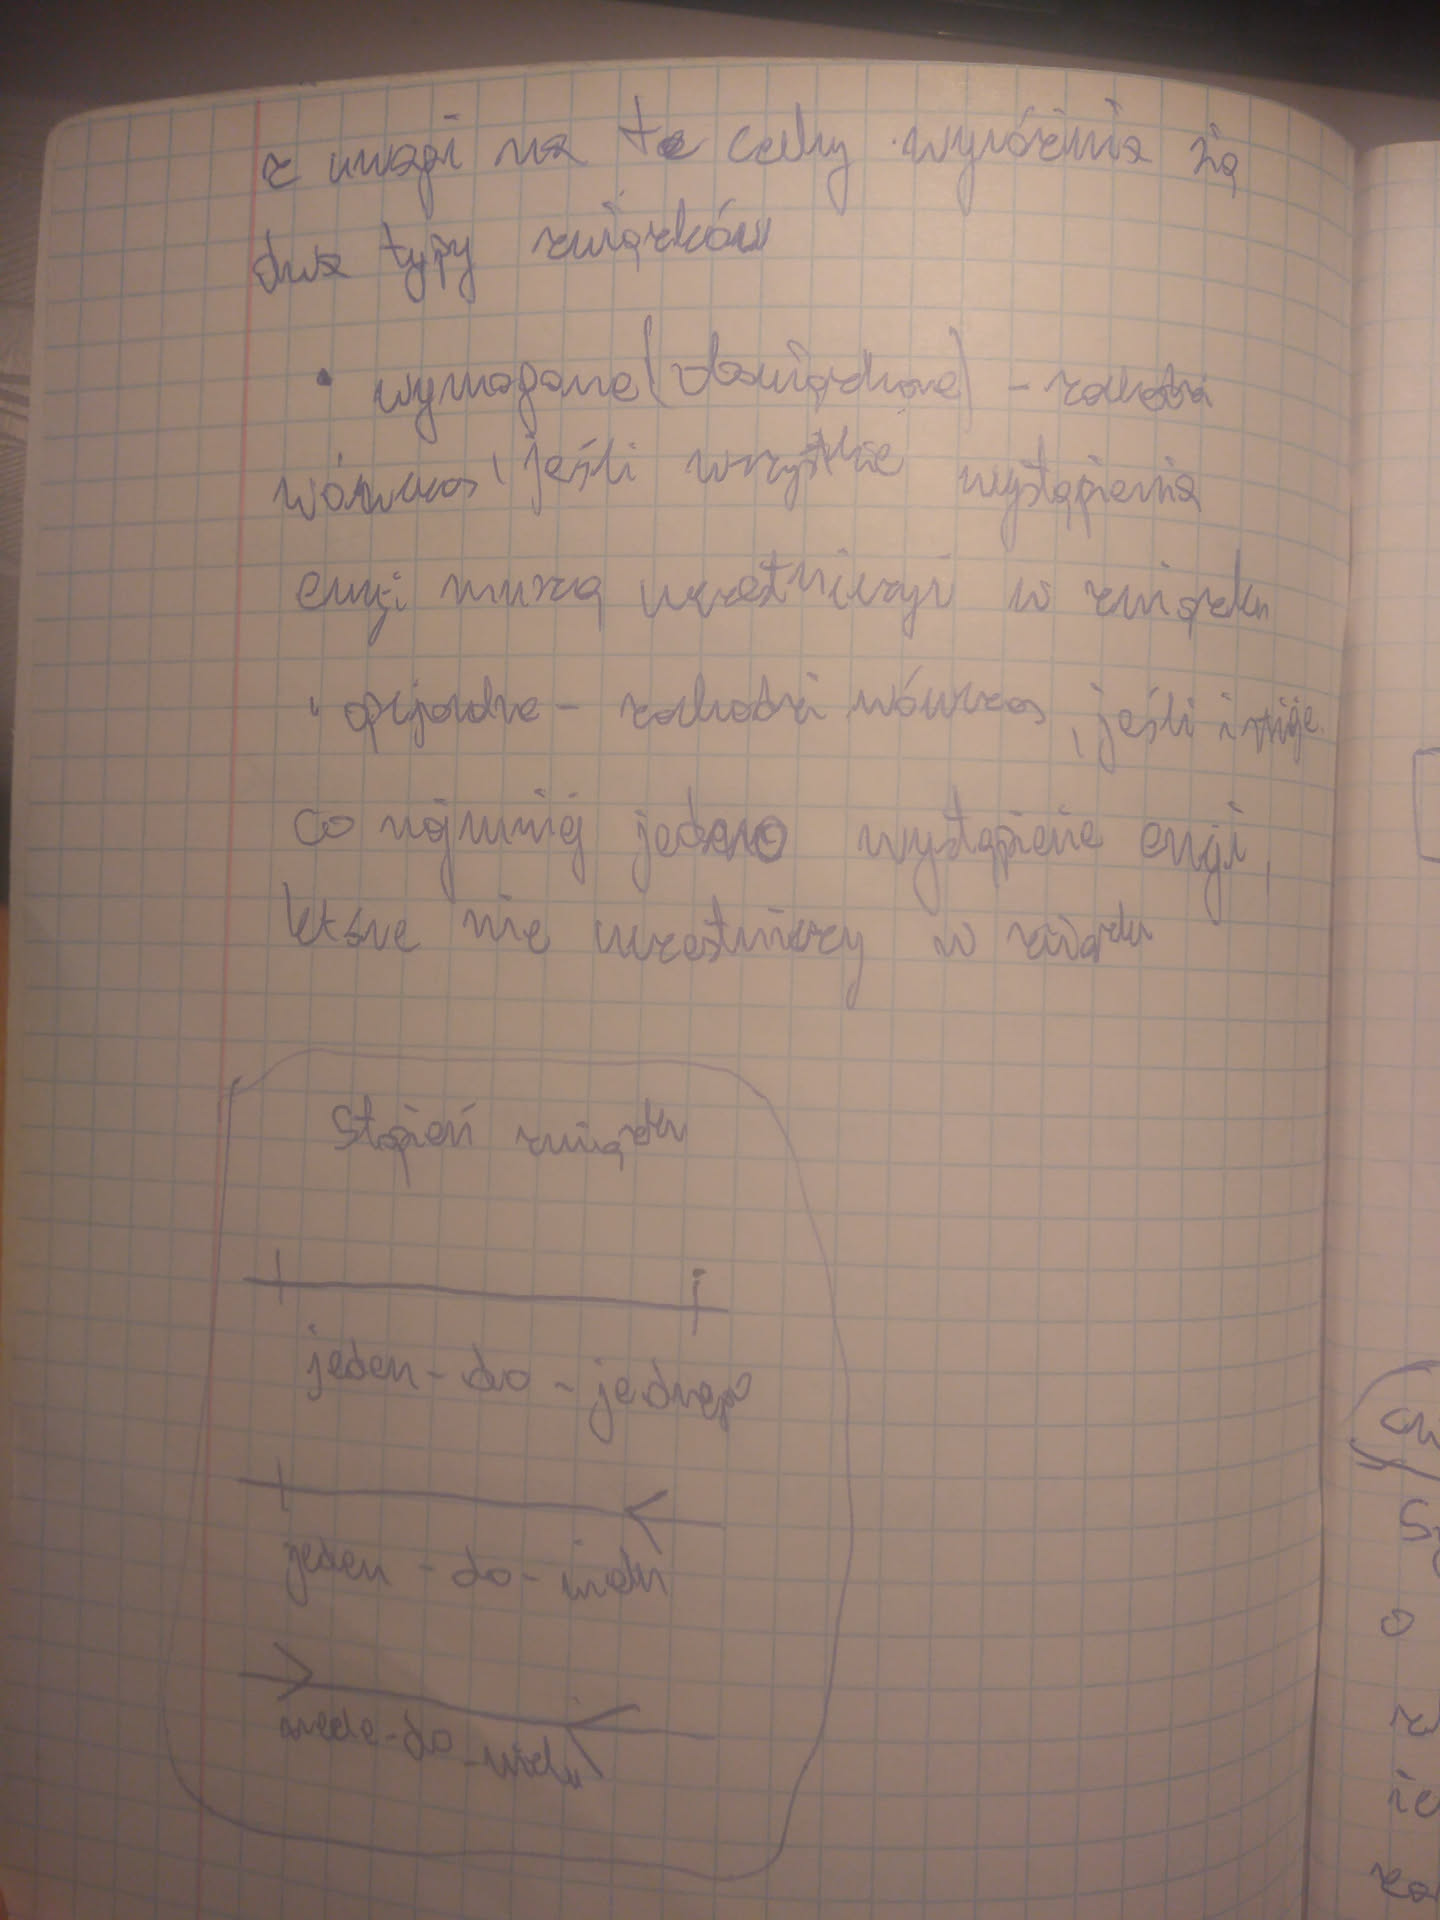 z uwagi na te cechy wyróżnia się
dwa typy związków
• wymagane (obowiązkowe) - zachodzi
wówczas, jeśli wszystkie wystąpienia
encji muszą uczestniczyć w związku
• opcjonalne - zachodzi wówczas, jeśli istnieje
co najmniej jedno wystąpienie encji,
które nie uczestniczy w związku
Stopień związku
jeden-do-jednego
jeden-do-wielu
wiele-do-wielu